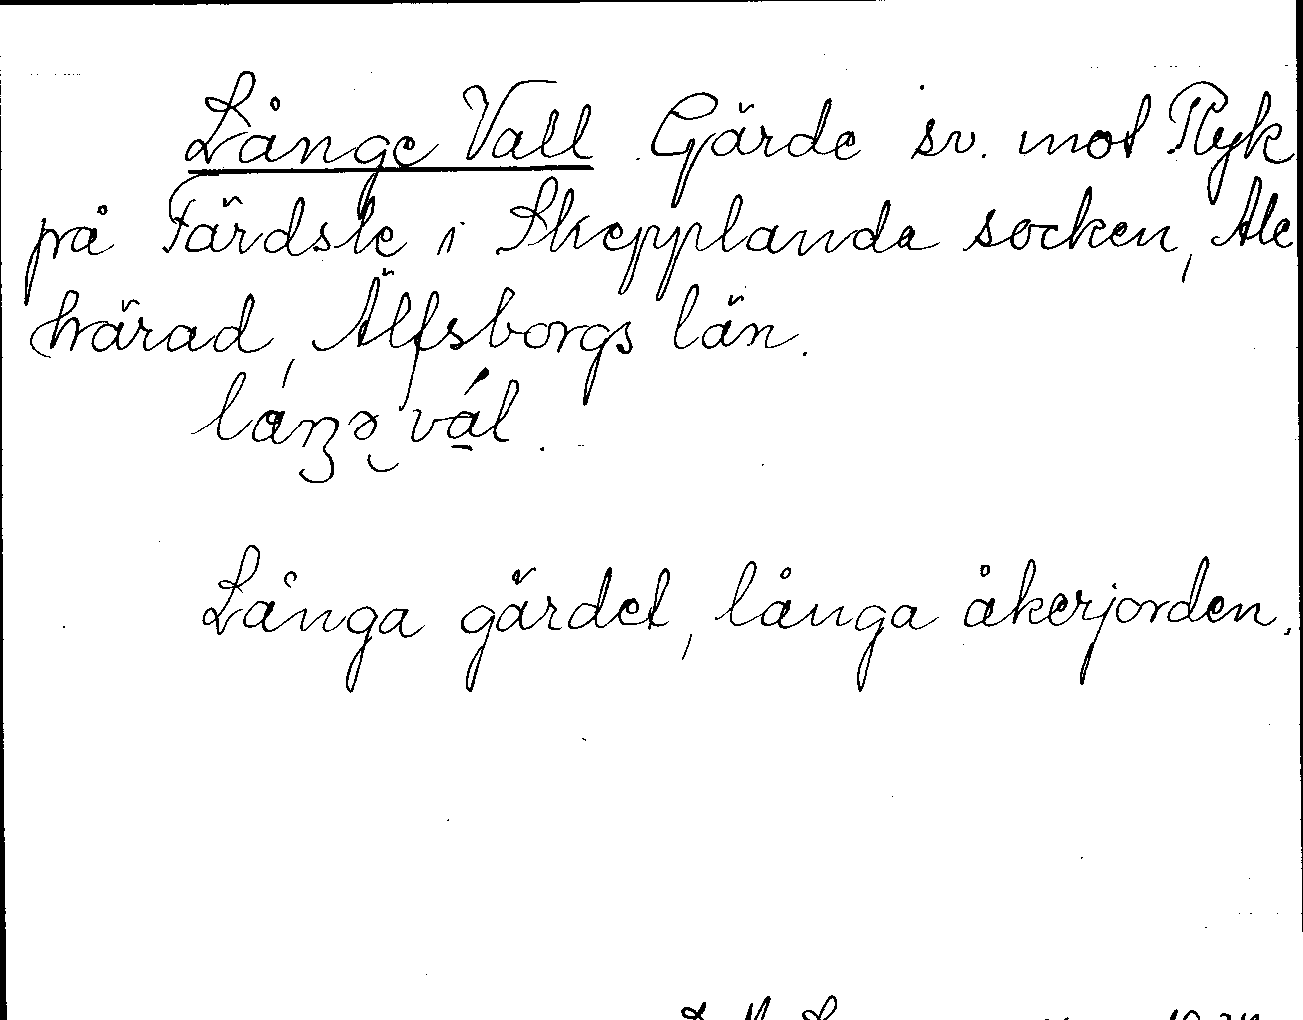 Långe Vall Gärde sv. mot Ryk
på Färdsle i Skepplanda socken, Ale
härad, Älfsborgs län.
vál.

Långa gärdet, långa åkerjorden.